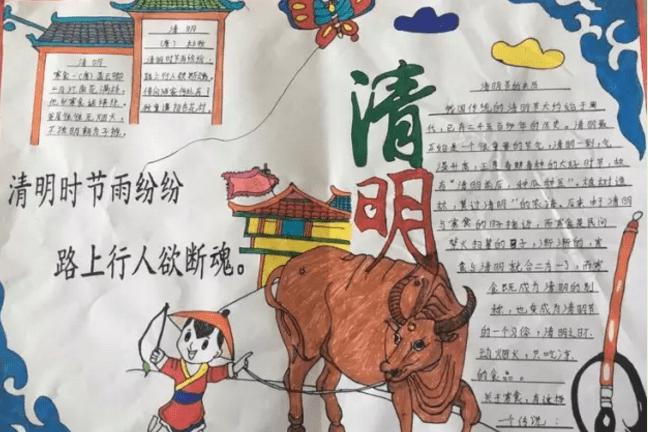 清明
清明
(唐) 杜牧
清明时节雨纷纷,
路上行人欲断魂。
清明时节雨纷纷
路上行人欲断魂。
清明
清明节的来历
我国传统的清明节大约始于周
代,已有二千五百多年的历史。清明最
开始是一个很重要的节气,清明一到,气
温升高,正是春耕春种的大好时节,故
有“清明前后,种瓜种豆”。植树造
林,莫过清明”的农谚。后来,由于清明
与寒食的日子接近,而寒食是民间
禁火扫墓的日子,渐渐的,寒
食与清明就合二为一了,而寒
食既成为清明的别
称,也变成为清明节
的一个习俗,清明之时
动烟火,只吃凉
的食品。
关于寒食,有这样
一个传说: